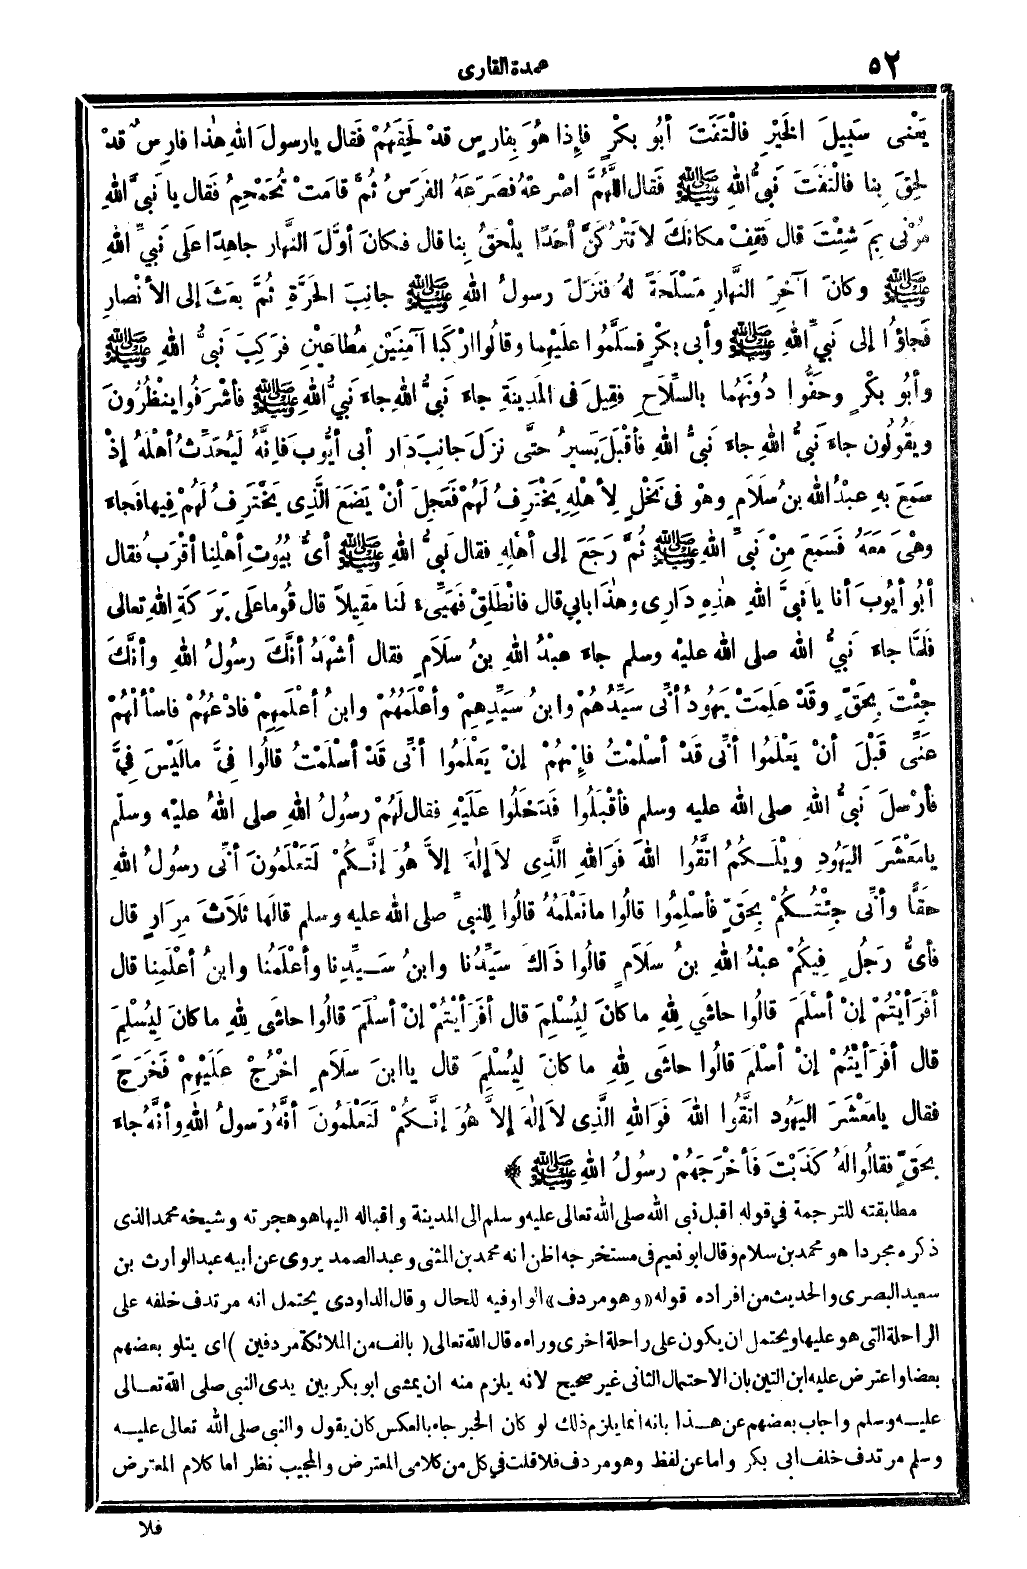 ٥٢
عمدة القارى
يَعْنى سَبِيلَ الخَيْرِ فالْتَفَتَ أبُو بكْرٍ فإذا هُوَ بِفارِسٍ قدْ لَحِقَهُمْ فَقال يارسولَ اللهِ هٰذا فارِسٌ قدْ
لحِقَ بِنا فالْتفَتَ نَبِيُّ اللهِ ﷺ فَقال اللَّهُمَّ اصْرعْهُ فصَرَعَهُ الفَرَسُ ثُمَّ قامَتْ تُحَمْحِمُ فَقال يا نَبِيَّ اللهِ
مُرْنى بِمَ شِئْتَ قال فَقِفْ مكانَكَ لا تَتْرُكَنَّ أحَدًا يلْحَقُ بِنا قال فكانَ أوَّلَ النَّهارِ جاهِدًا علَى نَبيِّ اللهِ
ﷺ وكانَ آخِرَ النَّهارِ مَسْلَحَةً لهُ فنَزَلَ رسولُ اللهِ ﷺ جانِبَ الحَرَّةِ ثُمَّ بعَثَ إلى الأنْصارِ
فَجاؤُا إلى نَبيِّ اللهِ ﷺ وأبى بكْرٍ فسَلَّمُوا علَيْهِما وقالُوا ارْكَبا آمِنَيْنِ مُطاعَيْنِ فرَكِبَ نَبىُّ اللهِ ﷺ
وأبُو بكْرٍ وحَفُّوا دُونَهُما بالسِّلاَحِ فقِيلَ فى المَدِينَةِ جاءَ نَبىُّ اللهِ جاءَ نَبيُّ اللهِ ﷺ فأشْرَفُوا ينْظُرُونَ
ويَقُولُون جاءَ نَبىُّ اللهِ جاءَ نَبىُّ اللهِ فأقْبَلَ يَسيرُ حتَّى نزلَ جانِبَ دَار أبى أيُّوبَ فَإنَّهُ لَيُحَدِّثُ أهْلَهُ إذْ
سَمِعَ بهِ عبْدُ الله بنُ سَلاَمٍ وهْوَ فى نَخْلٍ لِأهْلِهِ يَخْتَرِفُ لَهُمْ فَعَجِلَ أنْ يَضَعَ الَّذِى يَخْتَرِفُ لَهُمْ فِيها فَجاءَ
وهْىَ مَعَهُ فَسَمِعَ مِنْ نَبىِّ اللهِ ﷺ ثُمَّ رَجَعَ إلى أهْلِهِ فقال نَبىُّ اللهِ ﷺ أىُّ بُيُوتِ أهْلِنا أقْرَبُ فقال
أبُو أيُّوبَ أنا يا نَبىَّ اللهِ هٰذِهِ دَارِى وهذَا بابى قال فانْطَلِقْ فَهَيِّىءْ لَنا مَقِيلاً قال قُوما علَى بَرَكَةِ اللهِ تعالى
فَلمَّا جاءَ نَبىُّ الله صلى الله عليْه وسلم جاءَ عبْدُ اللهِ بنُ سَلاَمٍ فقال أشْهَدُ أنَّكَ رسُولُ اللهِ وأنَّكَ
جِئْتَ بِحَقٍّ وقَدْ عَلِمَتْ يَهُودُ أنِّى سَيِّدُهُمْ وابنُ سَيِّدِهِمْ وأعْلَمُهُمْ وابنُ أعْلَمِهِمْ فادْعُهُمْ فاسْألْهُمْ
عَنِّى قَبْلَ أنْ يَعْلَمُوا أنِّى قَدْ أسْلَمْتُ فإنَّهُمْ إنْ يَعْلَمُوا أنِّى قَدْ أسْلَمْتُ قالُوا فِىَّ مالَيْسَ فِىَّ
فأرْسلَ نَبىُّ اللهِ صلى الله عليه وسلم فأقْبَلُوا فَدَخَلُوا عَلَيْهِ فقال لَهُمْ رسُولُ اللهِ صلى اللهُ عليْه وسلّم
يامَعْشَرَ اليَهُودِ ويْلَكُمُ اتَّقُوا اللهَ فَوَاللهِ الَّذِى لاَ إلٰهَ إلاَّ هُوَ إنَّكُمْ لَتَعْلَمُونَ أنِّى رسولُ اللهِ
حقًّا وأنِّى جِئْتُكُمْ بِحَقٍّ فأسْلِمُوا قالُوا مانَعْلَمُهُ قالُوا لِلنبىِّ صلى الله عليه وسلم قالَها ثَلاَثَ مِرَارٍ قال
فأىُّ رَجُلٍ فِيكُمْ عبْدُ اللهِ بنُ سَلاَمٍ قالُوا ذَاكَ سَيِّدُنا وابنُ سَيِّدِنا وأعْلَمُنا وابنُ أعْلَمِنا قال
أفَرَأيْتُمْ إنْ أسْلَمَ قالُوا حاشَى لِلهِ ما كانَ لِيُسْلِمَ قال أفَرَأيْتُمْ إنْ أسْلَمَ قالُوا حاشَى لِلهِ ما كانَ لِيُسْلِمَ
قال أفَرَأيْتُمْ إنْ أسْلَمَ قالُوا حاشَى لِلهِ ما كانَ لِيُسْلِمَ قال ياابنَ سَلاَمٍ اخْرُجْ علَيْهِمْ فَخَرَجَ
فقال يامَعْشَرَ اليَهُود اتَّقُوا اللهَ فَوَاللهِ الَّذِى لاَ إلٰهَ إلاَّ هُوَ إنَّكُمْ لَتَعْلَمُونَ أنَّهُ رَسولُ اللهِ وأنَّهُ جاءَ
بِحَقٍّ فقالُوا لَهُ كَذَبْتَ فَأخْرَجَهُمْ رسولُ اللهِ ﷺ ﴾
مطابقته للترجمة في قوله اقبل نبى الله صلى الله تعالى عليه وسلم الى المدينة واقباله اليها هو هجرته وشيخه محمد الذى
ذكره مجردا هو محمد بن سلام وقال ابو نعيم فى مستخرجه اظن انه محمد بن المثنى وعبد الصمد يروى عن ابيه عبد الوارث بن
سعيد البصرى والحديث من افراده قوله «وهو مردف» الواو فيه للحال وقال الداودى يحتمل انه مرتدف خلفه على
الراحلة التى هو عليها ويحتمل ان يكون على راحلة اخرى وراءه قال الله تعالى ( بالف من الملائكة مردفين ) اى يتلو بعضهم
بعضا واعترض عليه ابن التين بان الاحتمال الثانى غير صحيح لانه يلزم منه ان يمشى ابو بكر بين يدى النبى صلى الله تعالى
عليه وسلم واجاب بعضهم عن هذا بانه انما يلزم ذلك لو كان الخبر جاء بالعكس كان يقول والنبى صلى الله تعالى عليه
وسلم مرتدف خلف ابى بكر واما عن لفظ وهو مردف فلا قلت في كل من كلامى المعترض والمجيب نظر اما كلام المعترض
فلا